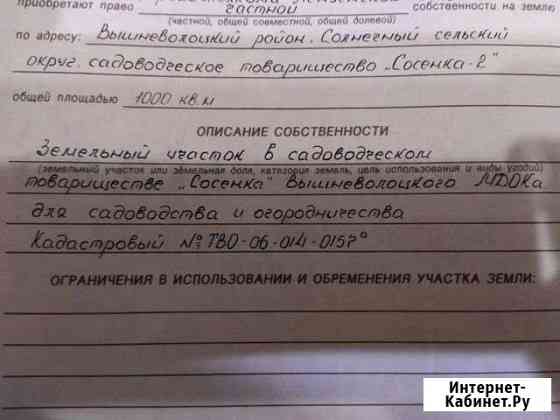 приобретают право
частной собственности на землю
(частной, общей совместной, общей долевой)
по адресу: Вышневолоцкий район. Солнечный сельский
округ. садоводческое товарищество „Сосенка-2"
общей площадью 1000 кв.м
ОПИСАНИЕ СОБСТВЕННОСТИ
Земельный участок в садоводческом
(земельный участок или земельная доля, категория земель, цель использования и виды угодий)
товариществе „Сосенка" Вышневолоцкого МДОКа
для садоводства и огородничества
Кадастровый № ТВО-06-014-0157
ОГРАНИЧЕНИЯ В ИСПОЛЬЗОВАНИИ И ОБРЕМЕНЕНИЯ УЧАСТКА ЗЕМЛИ:
Интернет-
Кабинет.Ру